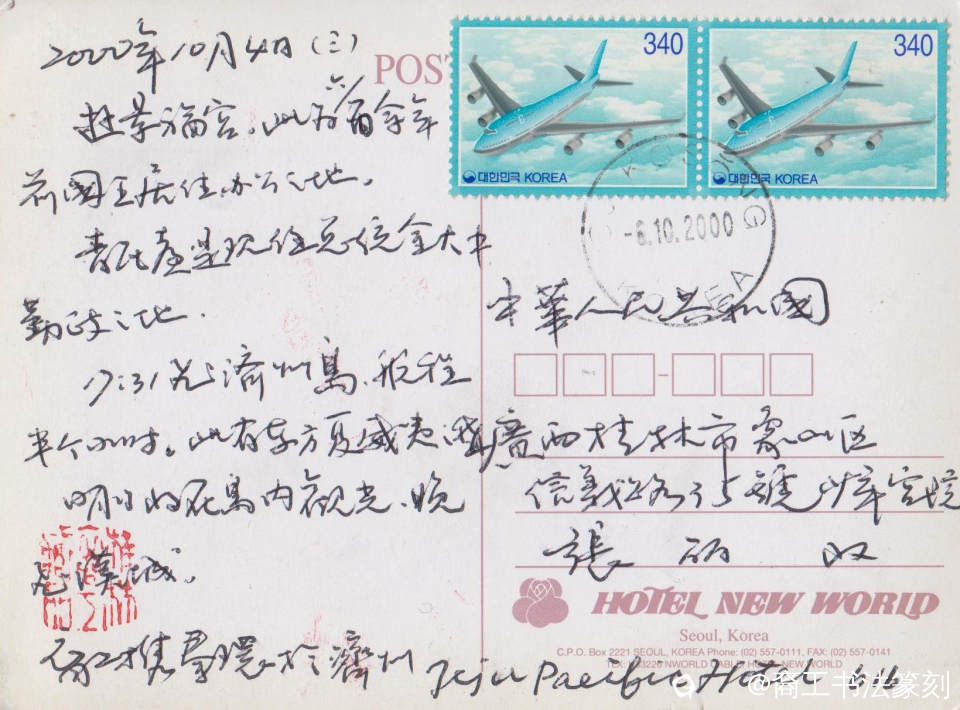 2000年10月4日(三)
POST
游景福宫。此为六百余年
前國王居住办公之地。
青瓦臺是现任总统金大中
勤政之地.
17:31飞济州島.航程
半个小时。此有东方夏威夷
明日将在島内观光.晚
飞漢城.
於濟州
Jeju Pacific Hotel
340
340
대한민국 KOREA
대한민국 KOREA
-6.10.2000
KOREA
中華人民共和國
廣西桂林市象山区
信義路 號
張 丽 收
HOTEL NEW WORLD
Seoul, Korea
C.P.O. Box 2221 SEOUL, KOREA Phone: (02) 557-0111, FAX: (02) 557-0141
NWORLD CABLE: HOTEL NEW WORLD
@裔工书法篆刻